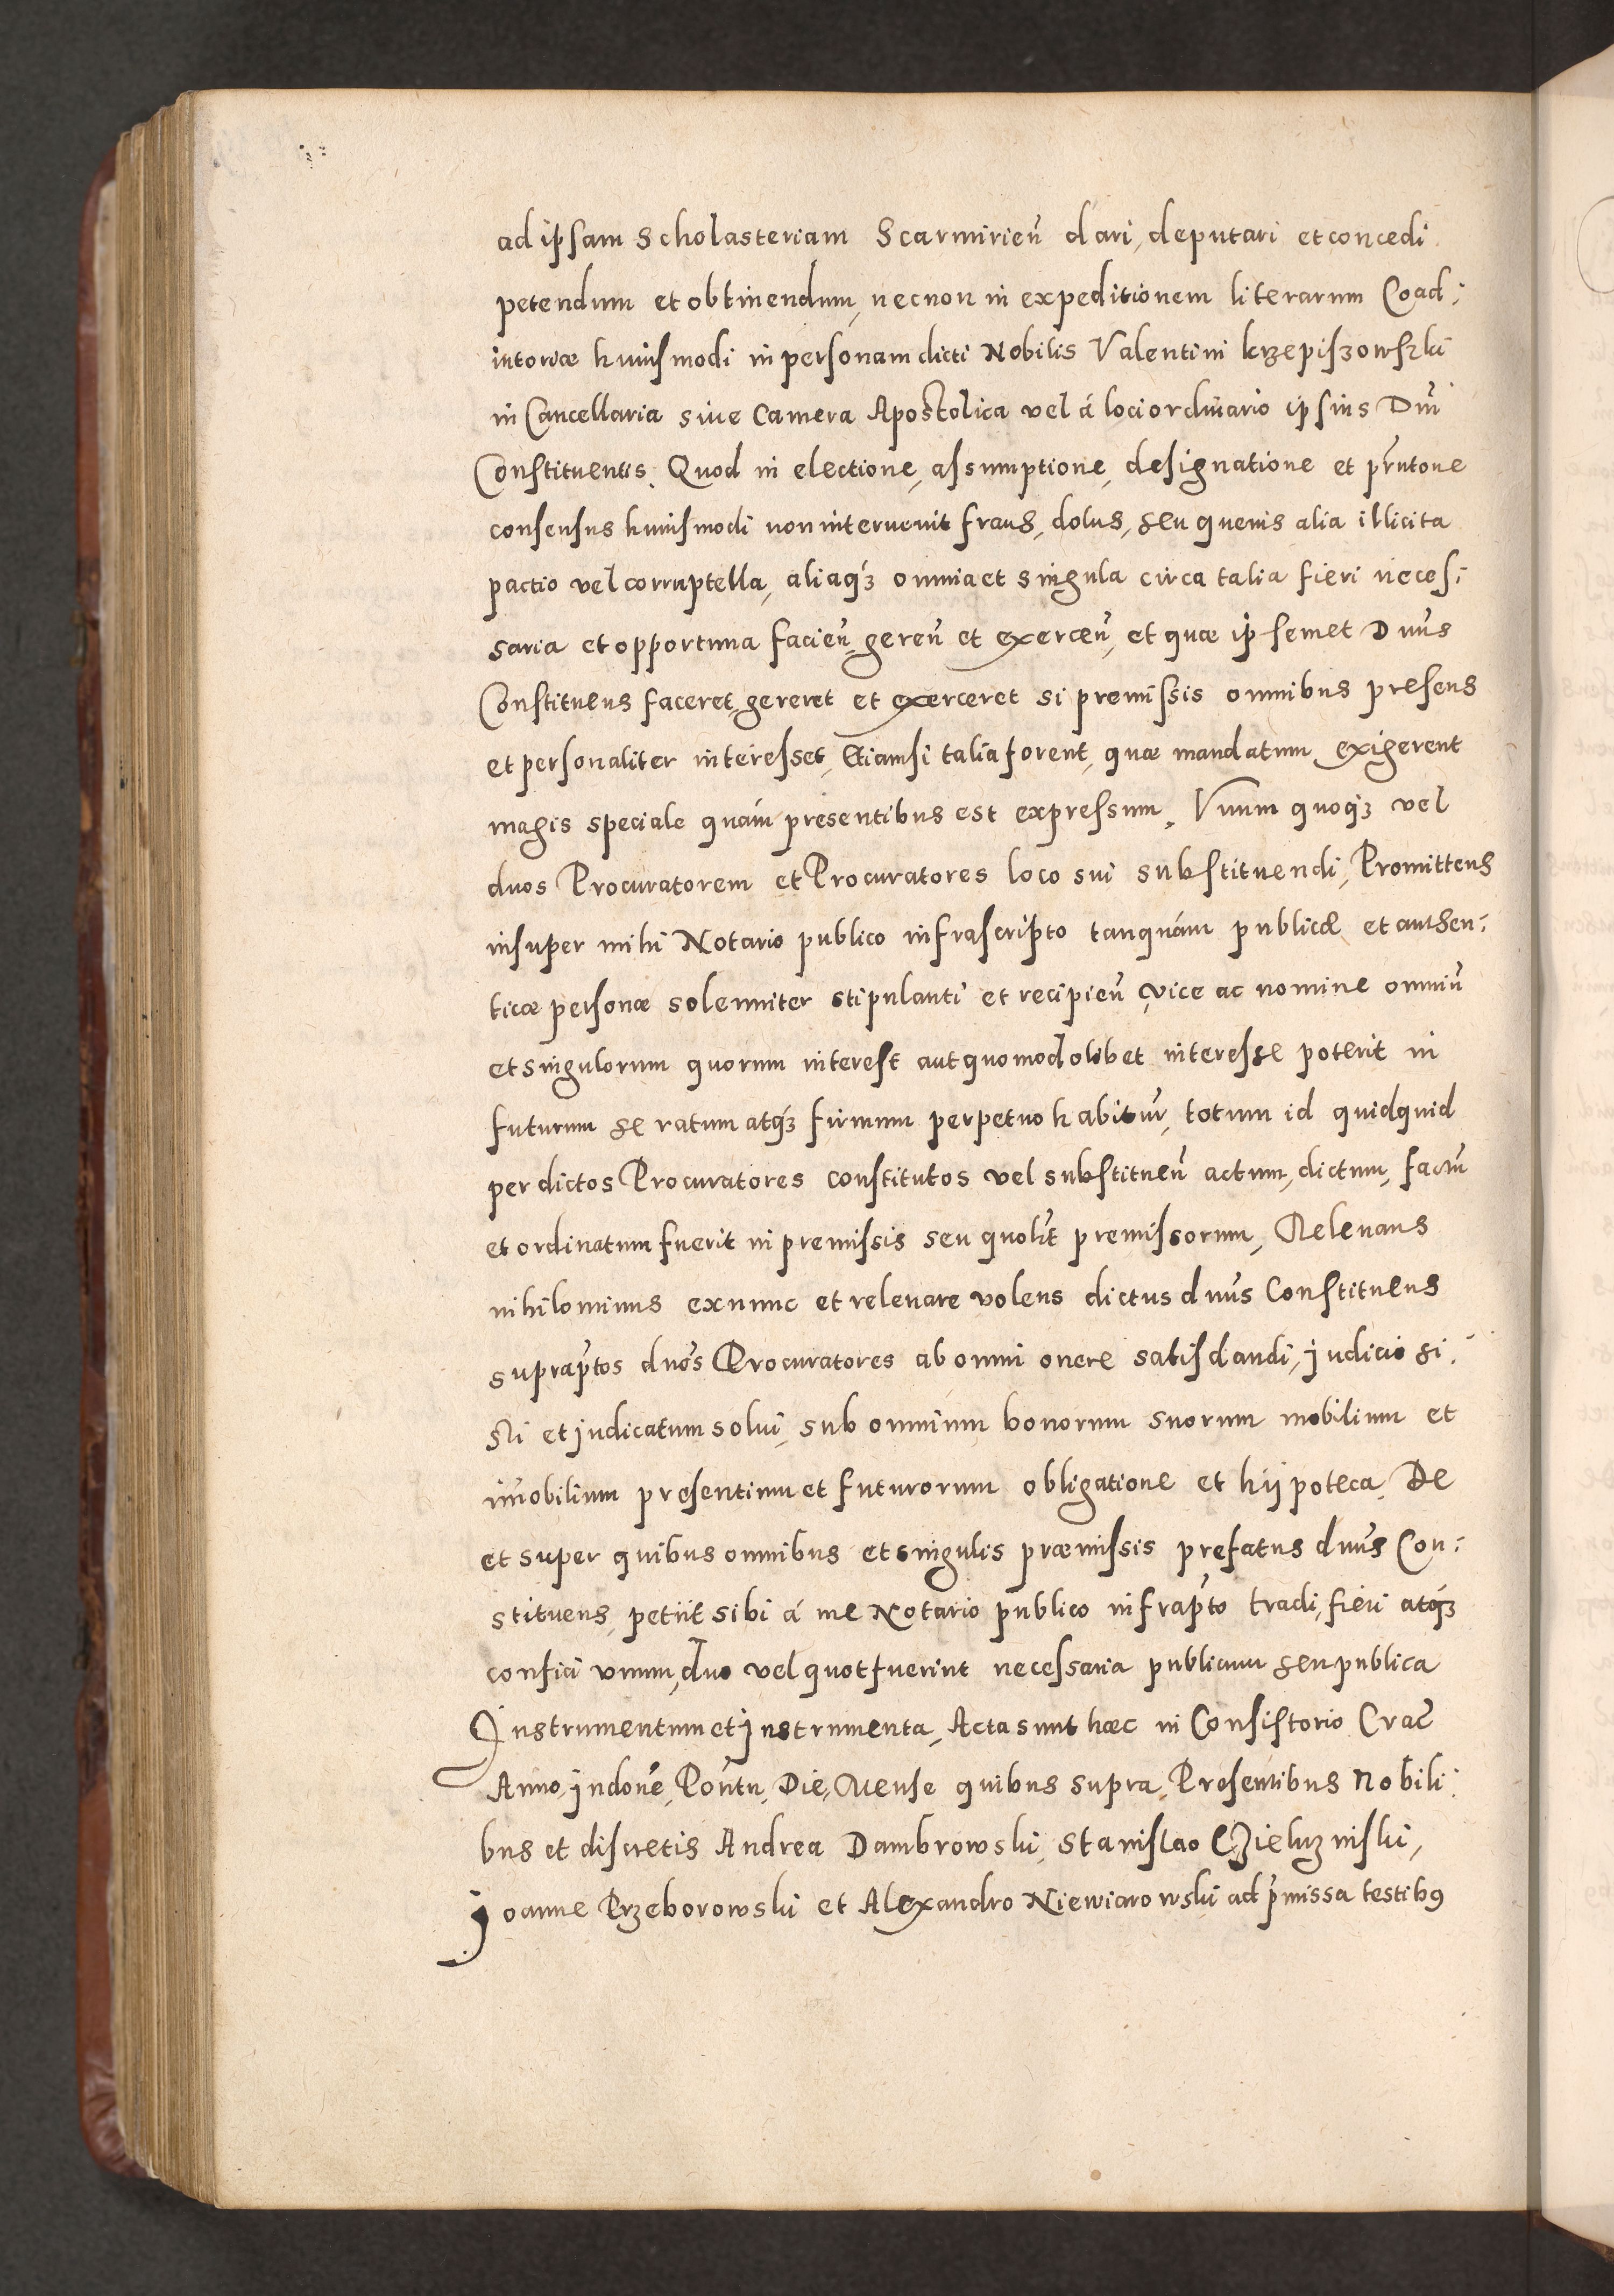 ad ipsam Scholasteriam Scarmirieñ dari, deputari et concedi
petendum et obtinendum, necnon in expeditionem literarum Coad:
iutoriæ huiusmodi in personam dicti Nobilis Valentini krzepiszowski
in Cancellaria siue Camera Apostolica vel á loci ordinario ipsius Dñi
Constituentis. Quod in electione, assumptione, designatione et pñtone
consensus huiusmodi non interuenit fraus, dolus, seu quenis alia illicita
pactio vel corruptella, aliaqꝫ omnia et singula circa talia fieri neces:
saria et opportuna facieñ, gereñ et exerceñ, et quæ ipsemet Dñus
Constituens faceret, gereret et exerceret si premissis omnibus presens
et personaliter interesset, Etiamsi talia forent, quæ mandatum exigerent
magis speciale quám presentibus est expressum. Vnum quoqꝫ vel
duos Procuratorem et Procuratores loco sui substituendi, Promittens
insuper mihi Notario publico infrascripto tanquám publicæ et authen:
ticæ personæ solenniter stipulanti et recipieñ, vice ac nomine omniũ
et singulorum quorum interest aut quomodolibet interesse poterit in
futurum se ratum atqꝫ firmum perpetuo habitur̃, totum id quidquid
per dictos Procuratores constitutos vel substitueñ actum, dictum, factũ
et ordinatum fuerit in premissis seu quolib̃t premissorum, Releuans
nihilominus exnunc et releuare volens dictus dñus Constituens
suprap̃tos dños Procuratores ab omni onere satisdandi, judicio si:
sti et judicatum solui, sub omnium bonorum suorum mobilium et
im̃obilium presentium et futurorum obligatione et hijpoteca, De
et super quibus omnibus et singulis præmissis prefatus dñus Con:
stituens, petiit sibi á me Notario publico infrap̃to tradi, fieri atqꝫ
confici vnum, duo vel quot fuerint necessaria publicum seu publica
Instrumentum et jnstrumenta, Acta sunt hæc in Consistorio Crac̃
Anno, jndoñe, Poñtu, Die, Mense quibus supra, Presentibus Nobili:
bus et discretis Andrea Dambrowski, Stanislao Czieluzniski,
joanne Przeborowski et Alexandro Niewiarowski ad p̃missa testibꝰ